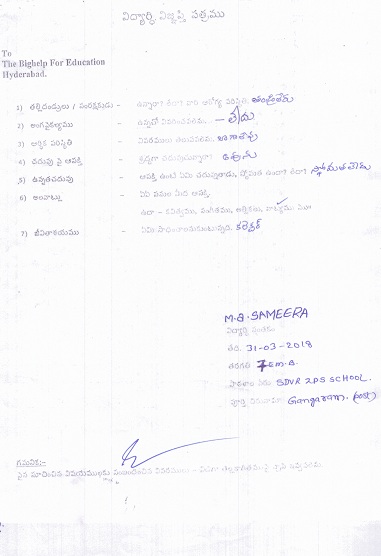 విద్యార్థి విజ్ఞప్తి పత్రము
To
The Bighelp For Education
Hyderabad.
1) తల్లిదండ్రులు / సంరక్షకుడు - ఉన్నారా? లేరా? వారి ఆరోగ్య పరిస్థితి.
2) అంగవైకల్యము - ఉన్నచో వివరించవలెను. - లేదు
3) ఆర్థిక పరిస్థితి - వివరములు తెలుపవలెను.
4) చదువు పై ఆసక్తి - శ్రద్ధగా చదువుచున్నారా?
5) ఉన్నతచదువు - ఆసక్తి ఉంటే ఏమి చదువుతాడు, స్తోమత ఉందా? లేదా?
6) అలవాట్లు - ఏఏ పనుల మీద ఆసక్తి.
ఉదా - కవిత్వము, సంగీతము, ఆటలు,
7) జీవితాశయము - ఏమి సాధించాలనుకుంటున్నది. కలెక్టర్
M.B. SAMEERA
విద్యార్థి సంతకం
తేది. 31-03-2018
తరగతి 7 E.M.B.
పాఠశాల పేరు SDVR ZPS SCHOOL.
పూర్తి చిరునామా Gangaram. (post)
గమనిక:-
పైన సూచించిన విషయములకు సంబంధించిన వివరములు